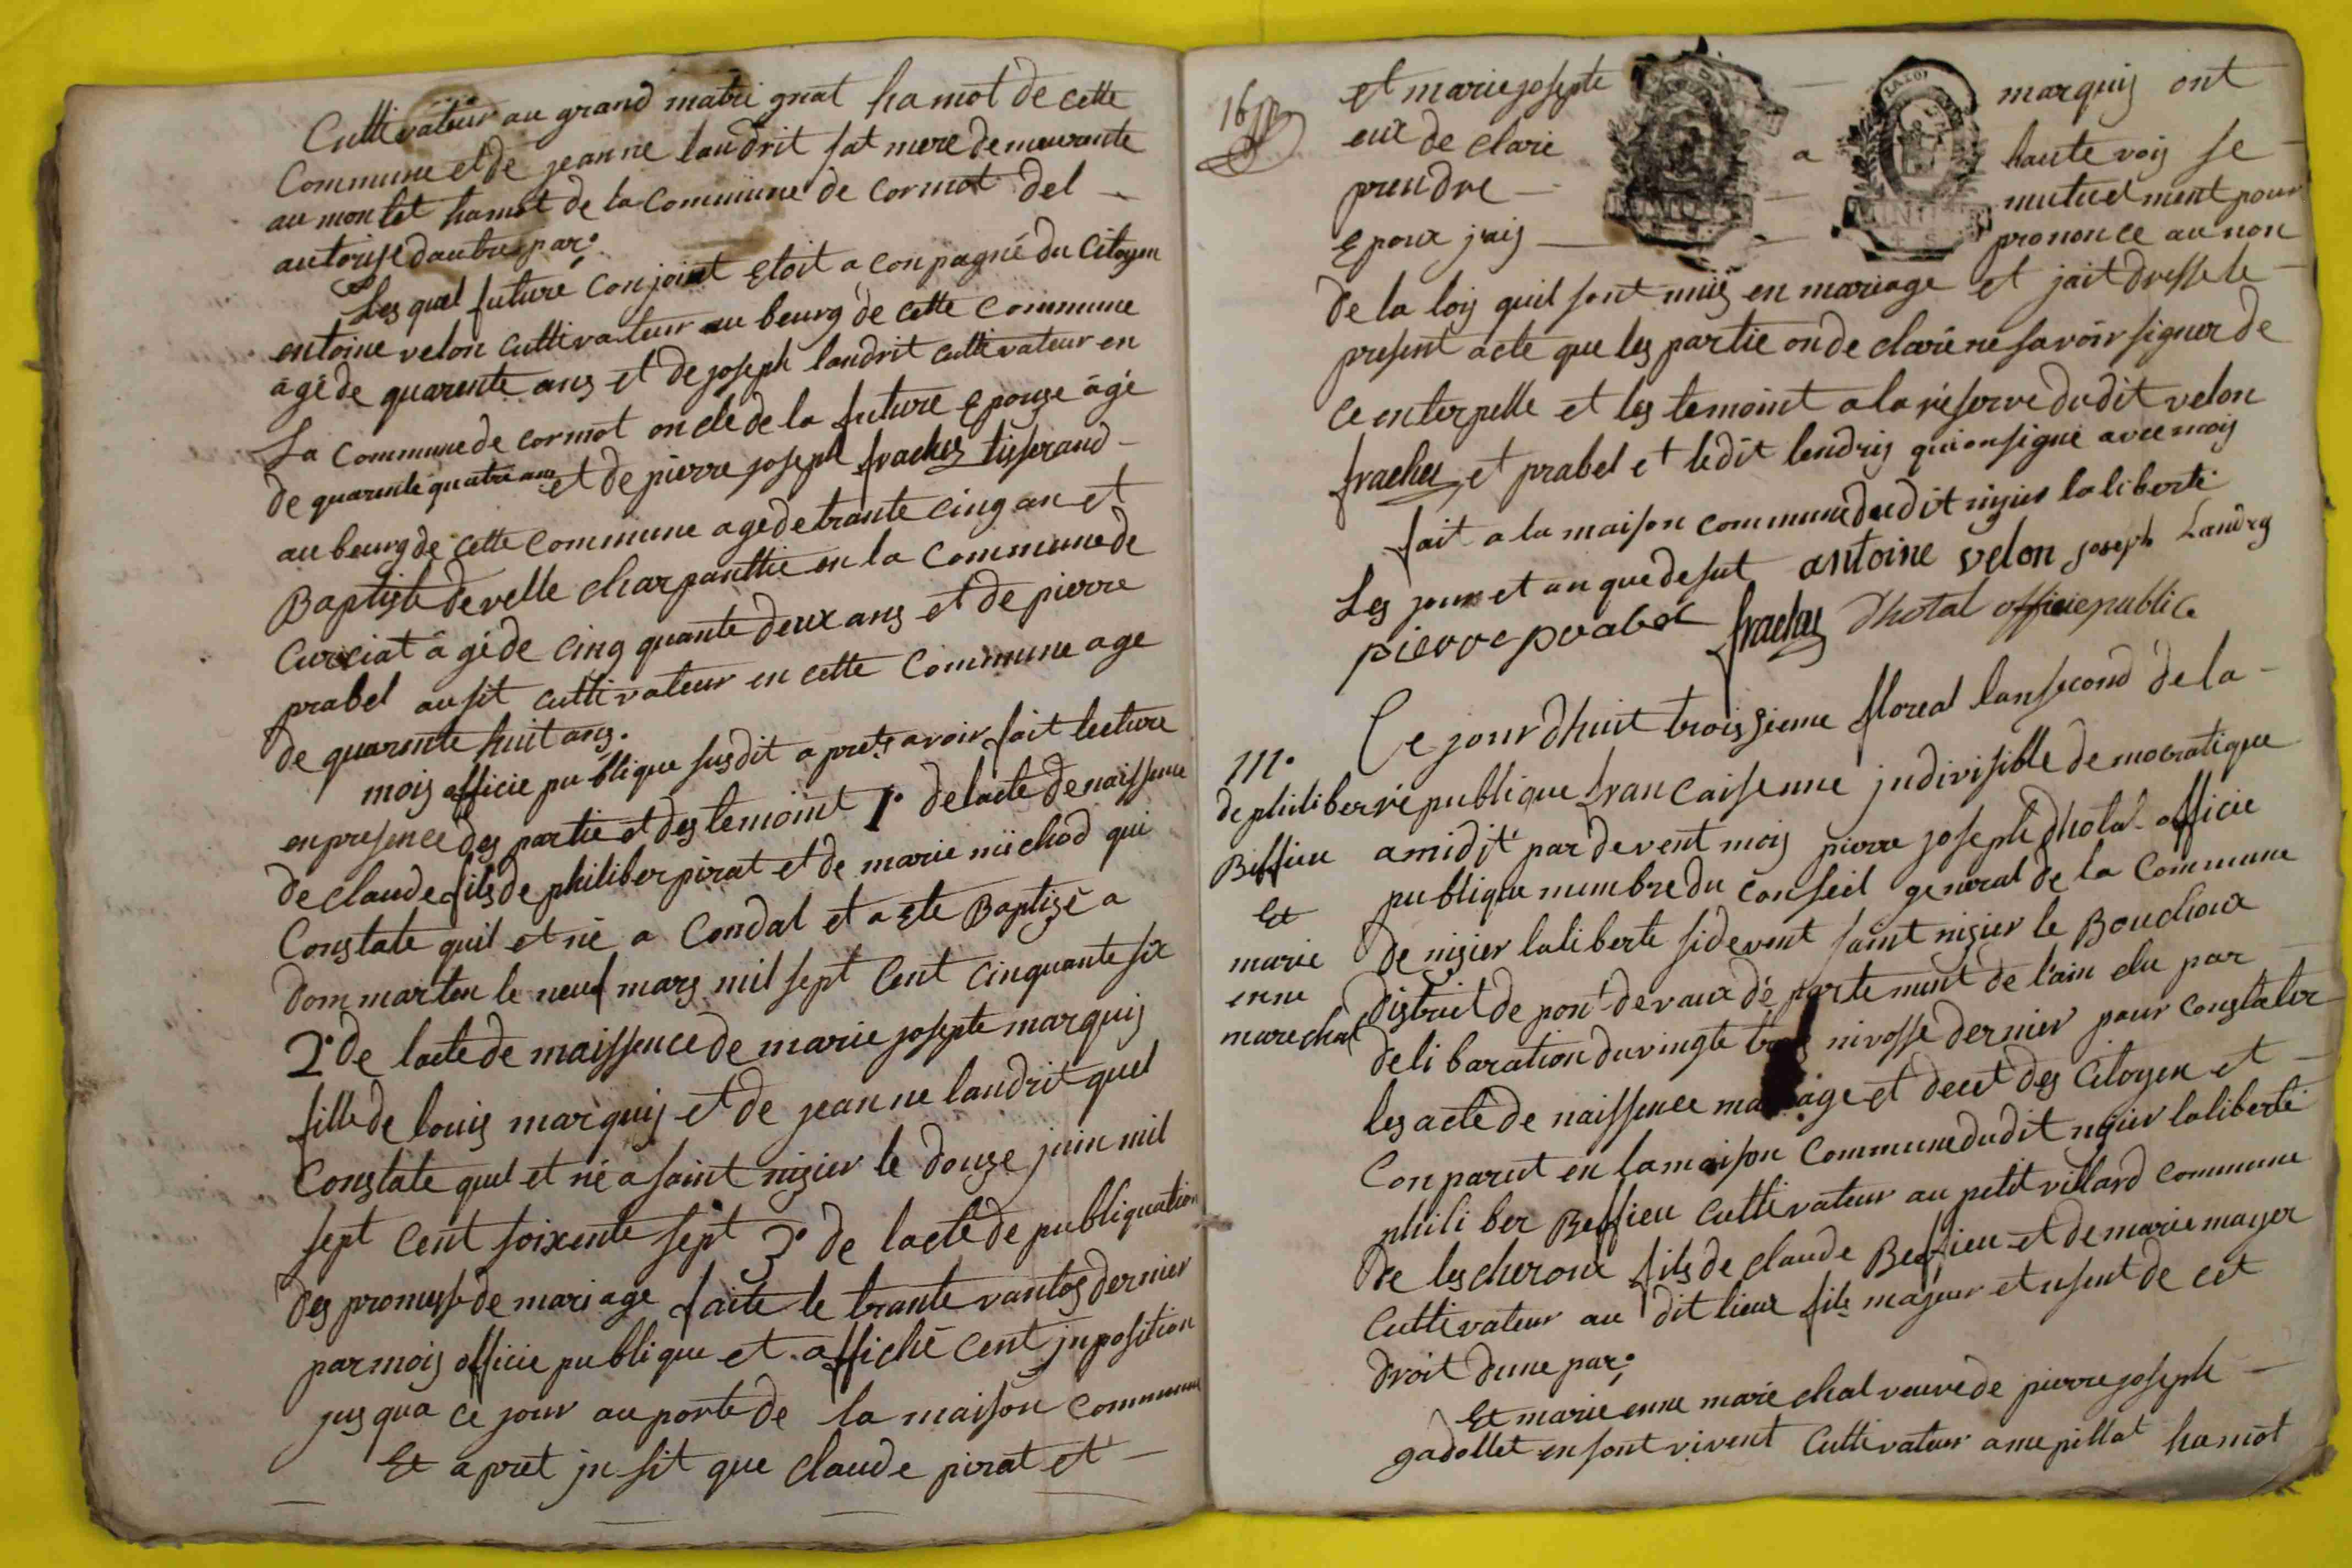 Cultivateur au grand matri gnat hamot de cette
Commune et de jeanne landrit sat mere demeurante
au montet hamot de la Commune de Cormot del
autorisé dautres par.
Les quel future conjoint etoit a conpagné du Citoyen
entoine velon cultivateur au beurg de cette Commune
âgé de quarente ans et de joseph landrit cultivateur en
La Commune de cormot oncle de la future epouse âgé
de quarente quatre ans et de pierre joseph frachet tisserand
au beurg de cette Commune age de trante cinq an et
Baptiste develle charpanttie en la Commune de
Curciat âgé de cinq quante deux ans et de pierre
prabel ausit cultivateur en cette Commune age
de quarente huit ans.
mois officie publique susdit a pret avoir fait lecture
en presence des partie et des temoint 1° de lacte de naissence
de claude fils de philiber pirat et de marie michod qui
Constate quil et né a Condal et a ete Baptizé a
dommarten le neuf mars mil sept Cent cinquante six
2° de lacte de naissence de marie josepte marquis
fille de louis marquis et de jeanne landrit quel
Constate quel et né a saint nizier le douze juin mil
sept Cent soixente sept 3° de lacte de publiquation
des promesse de mariage faite le trante vantos dernier
par mois officie publique et affiché cent jnposition
jus qua ce jour au porte de la maison Commune
Et a pret jn sit que claude pirat et
16
et marie josepte marquis ont
eux de clare a haute vois se
prendre mutuelment pour
epoux jais prononce au non
de la lois quil sont unis en mariage et jait dresse le
present acte que les partie on de claré ne savoir signer de
ce enterpelle et les temoint a la réserve dudit velon
frachet et prabel et ledit landris qui on signé avec mois
fait a la maison commune dudit nizier laliberté
Les jour et an que desut antoine velon joseph Landry
pierre prabel frachet Dhotal officie public
111.
de philiber
Beffieu
Et
marie
enne
marechal
Ce jour dhuit troissieme floreal lan second de la
république francaise une jndivisible democratique
a midit par devent mois pierre joseph dhotal officie
publique membre du Conseil general de la Commune
de nizier laliberté sidevent saint nizier le Bouchoux
distrit de pont devaux dé partement de l'ain elu par
deli baration du vingte trois nivosse dernier pour constater
les acte de naissence mariage et decet des Citoyen et
Conparut en la maison Commune dudit nizier laliberté
philiber Beffieu cultivateur au petit villard commune
de lescheroux fils de claude Beffieu et de marie mayer
Cultivateur au dit lieux fils majeur et usent de cet
droit dune par.
Et marie enne maré chal veuve de pierre joseph
gadollet en sont vivent Cultivateur a mepillat hamot